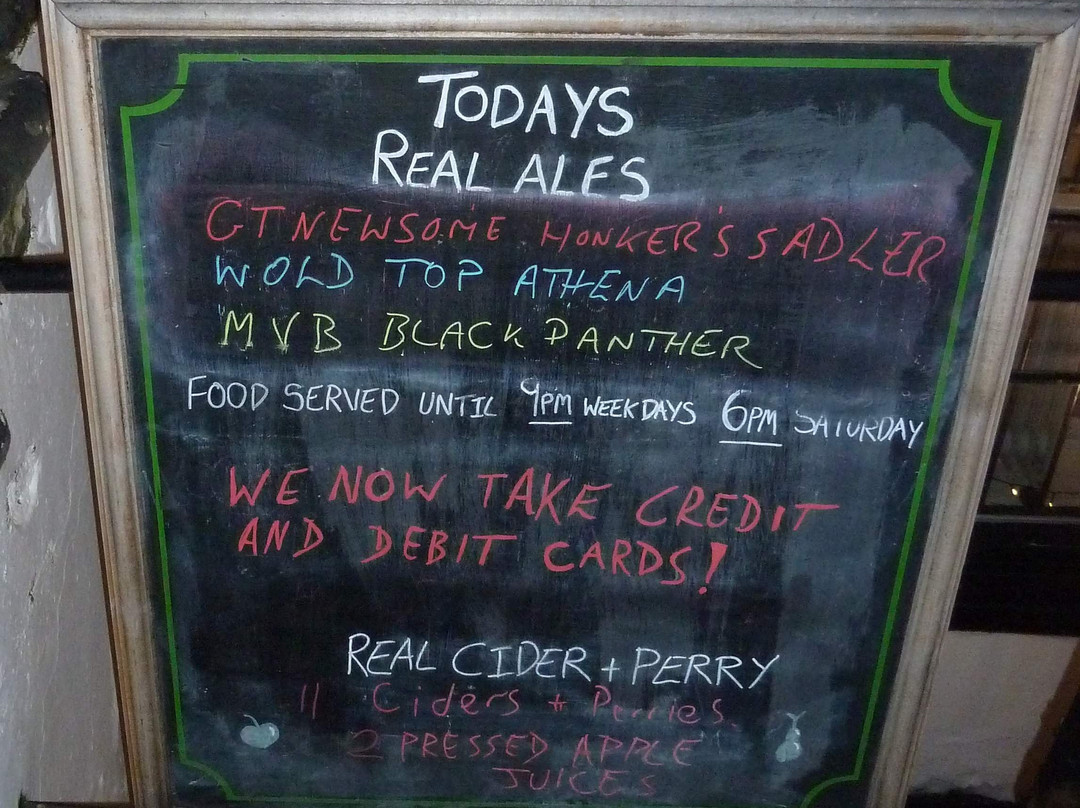 TODAYS
REAL ALES
GT NEWSOME HONKER'S SADLER
WOLD TOP ATHENA
MVB BLACK PANTHER
FOOD SERVED UNTIL 9PM WEEKDAYS 6PM SATURDAY
WE NOW TAKE CREDIT
AND DEBIT CARDS!
REAL CIDER + PERRY
11 Ciders + Perries.
2 PRESSED APPLE
JUICES